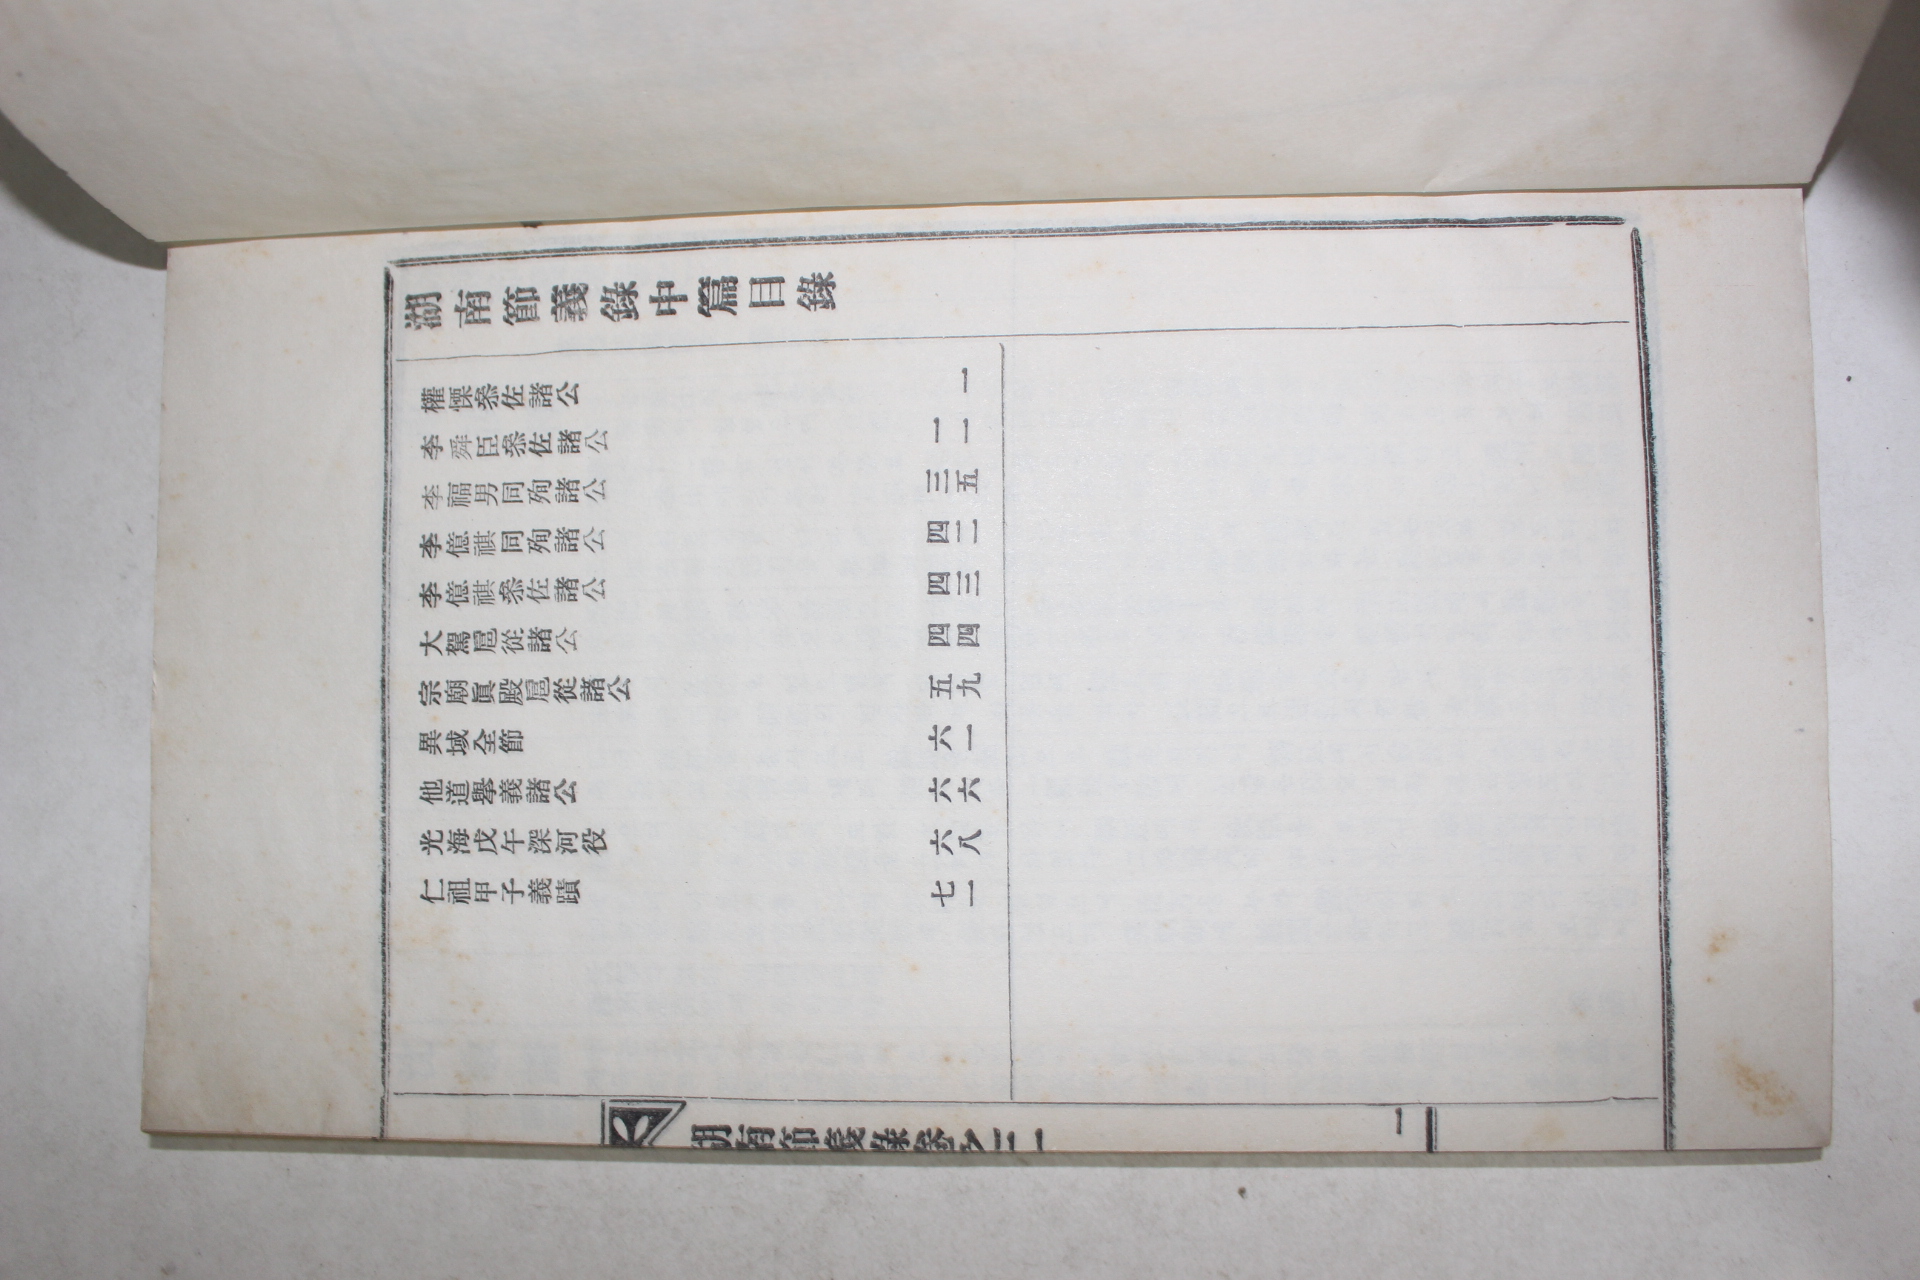 湖南節義錄中篇目錄
權慄叅佐諸公 一
李舜臣叅佐諸公 一一
李福男同殉諸公 三五
李億祺同殉諸公 四二
李億祺叅佐諸公 四三
大駕扈從諸公 四四
宗廟眞殿扈從諸公 五九
異域全節 六一
他道擧義諸公 六六
光海戊午深河役 六八
仁祖甲子義蹟 七一
湖南節義錄卷之三
一